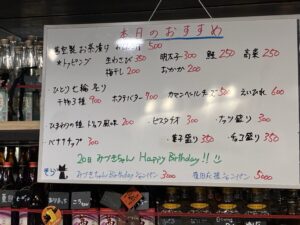 本日のおすすめ
お茶漬け 500
*トッピング 生わさび350 明太子300 鮭250 高菜250
梅干し200 おかか200
ひとり七輪 炙り
干物3種900 ホタテバター900 カマンベールチーズ500 えいひれ600
ひまわりの種 200 ・ピスタチオ300 ・ナッツ盛り300
ベビーチップス 300 ・菓子盛り350 ・チョコ盛り350
20日 みづきちゃん Happy Birthday!! !!
みづきちゃん Birthday シャンパン 3000 応援シャンパン 5000